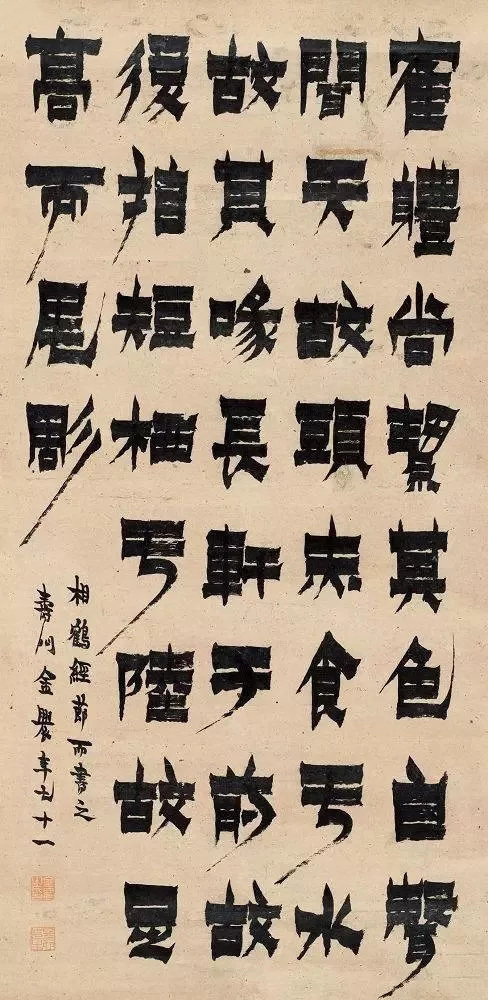 寉軆尚絜其色白聲
聞天故頭赤食亏水
故其喙長軒于前故
後指短栖亏陸故足
高而尾彫
相鶴經節而書之
壽門金農年七十一